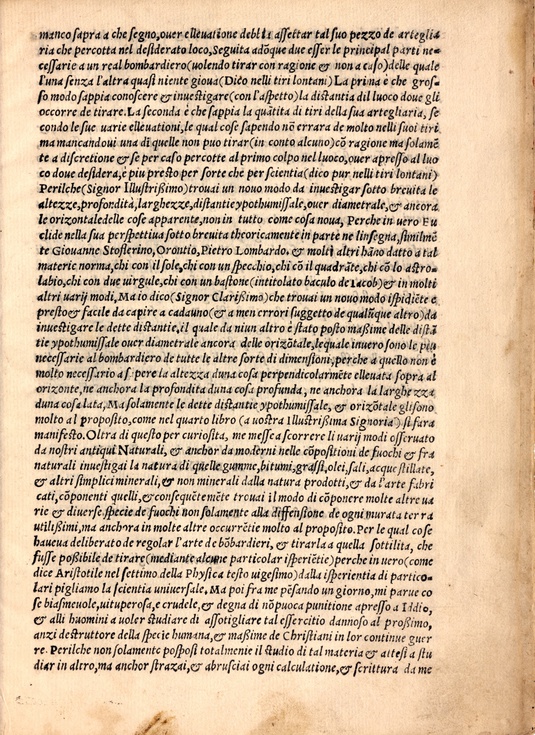 manco sapra a che segno, ouer elleuatione debbia assettar tal suo pezzo de arteglia
ria che percotta nel desiderato loco, Seguita adōque due esser le principal parti ne=
cessarie a un real bombardiero (uolendo tirar con ragione & non a caso) delle quale
l'una senza l'altra quasi niente gioua (Dico nelli tiri lontani) La prima è che gros=
so modo sappia conoscere & inuestigare (con l'aspetto) la distantia dil luoco doue gli
occorre de tirare. La seconda è che sappia la quātita di tiri della sua artegliaria, se
condo le sue uarie elleuationi, le qual cose sapendo nō errara de molto nelli suoi tiri
ma mancandoui una di quelle non puo tirar (in conto alcuno) cō ragione ma solamē
te a discretione & se per caso percotte al primo colpo nel luoco, ouer apresso al luo
co doue desidera, è piu presto per sorte che per scientia (dico pur nelli tiri lontani)
Perilche (Signor Illustrißimo) trouai un nouo modo da inuestigar sotto breuita le
altezze, profondità, larghezze, distantie ypothumissale, ouer diametrale, & ancora
le orizontale delle cose apparente, non in tutto come cosa noua, Perche in uero Eu
clide nella sua perspettiua sotto breuita theoricamente in parte ne linsegna, similmē
te Giouanne Stoflerino, Orontio, Pietro Lombardo. & molti altri hāno datto a tal
materie norma, chi con il sole, chi con un specchio, chi cō il quadrāte, chi cō lo astro=
labio, chi con due uirgule, chi con un bastone (intitolato baculo de Iacob) & in molti
altri uarij modi, Ma io dico (Signor Clarißimo) che trouai un nouo modo ispidiēte e
presto & facile da capire a cadauno (& a men errori suggetto de qualūque altro) da
inuestigare le dette distantie, il quale da niun altro è stato posto maßime delle distā
tie ypothumissale ouer diametrale ancora delle orizōtale, lequale inuero sono le piu
necessarie al bombardiero de tutte le altre sorte di dimensioni, perche a quello non è
molto necessario a sapere la altezza duna cosa perpendicolarmēte elleuata sopra al
orizonte, ne anchora la profondita duna cosa profunda, ne anchora la larghezza
duna cosa lata, Ma solamente le dette distantie ypothumissale, & orizōtale gli sono
molto al proposito, come nel quarto libro (a uostra Illustrißima Signoria) si fara
manifesto. Oltra di questo per curiosita, me messe a scorrere li uarij modi osseruato
da nostri antiqui Naturali, & anchor da moderni nelle cōpositioni de fuochi & fra
naturali inuestigai la natura di quelle gumme, bitumi, grassi, olei, sali, acque stillate,
& altri simplici minerali, & non minerali dalla natura prodotti, & da l'arte fabri
cati, cōponenti quelli, & consequētemēte trouai il modo di cōponere molte altre ua
rie & diuerse specie de fuochi non solamente alla diffensione de ogni murata terra
utilißimi, ma anchora in molte altre occurrētie molto al proposito. Per le qual cose
haueua deliberato de regolar l'arte de bōbardieri, & tirarla a quella sottilita, che
fusse poßibile de tirare (mediante alcune particolar isperiētie) perche in uero (come
dice Aristotile nel settimo della Physica testo uigesimo) dalla isperientia di partico=
lari pigliamo la scientia uniuersale. Ma poi fra me pēsando un giorno, mi parue co
se biasmeuole, uituperosa, e crudele, & degna di nō puoca punitione apresso a Iddio,
& alli huomini a uoler studiare di assotigliare tal essercitio dannoso al proßimo,
anzi destruttore della specie humana, & maßime de Christiani in lor continue guer
re. Perilche non solamente posposi totalmente il studio di tal materia & attesi a stu
diar in altro, ma anchor strazai, & abrusciai ogni calculatione, & scrittura da me